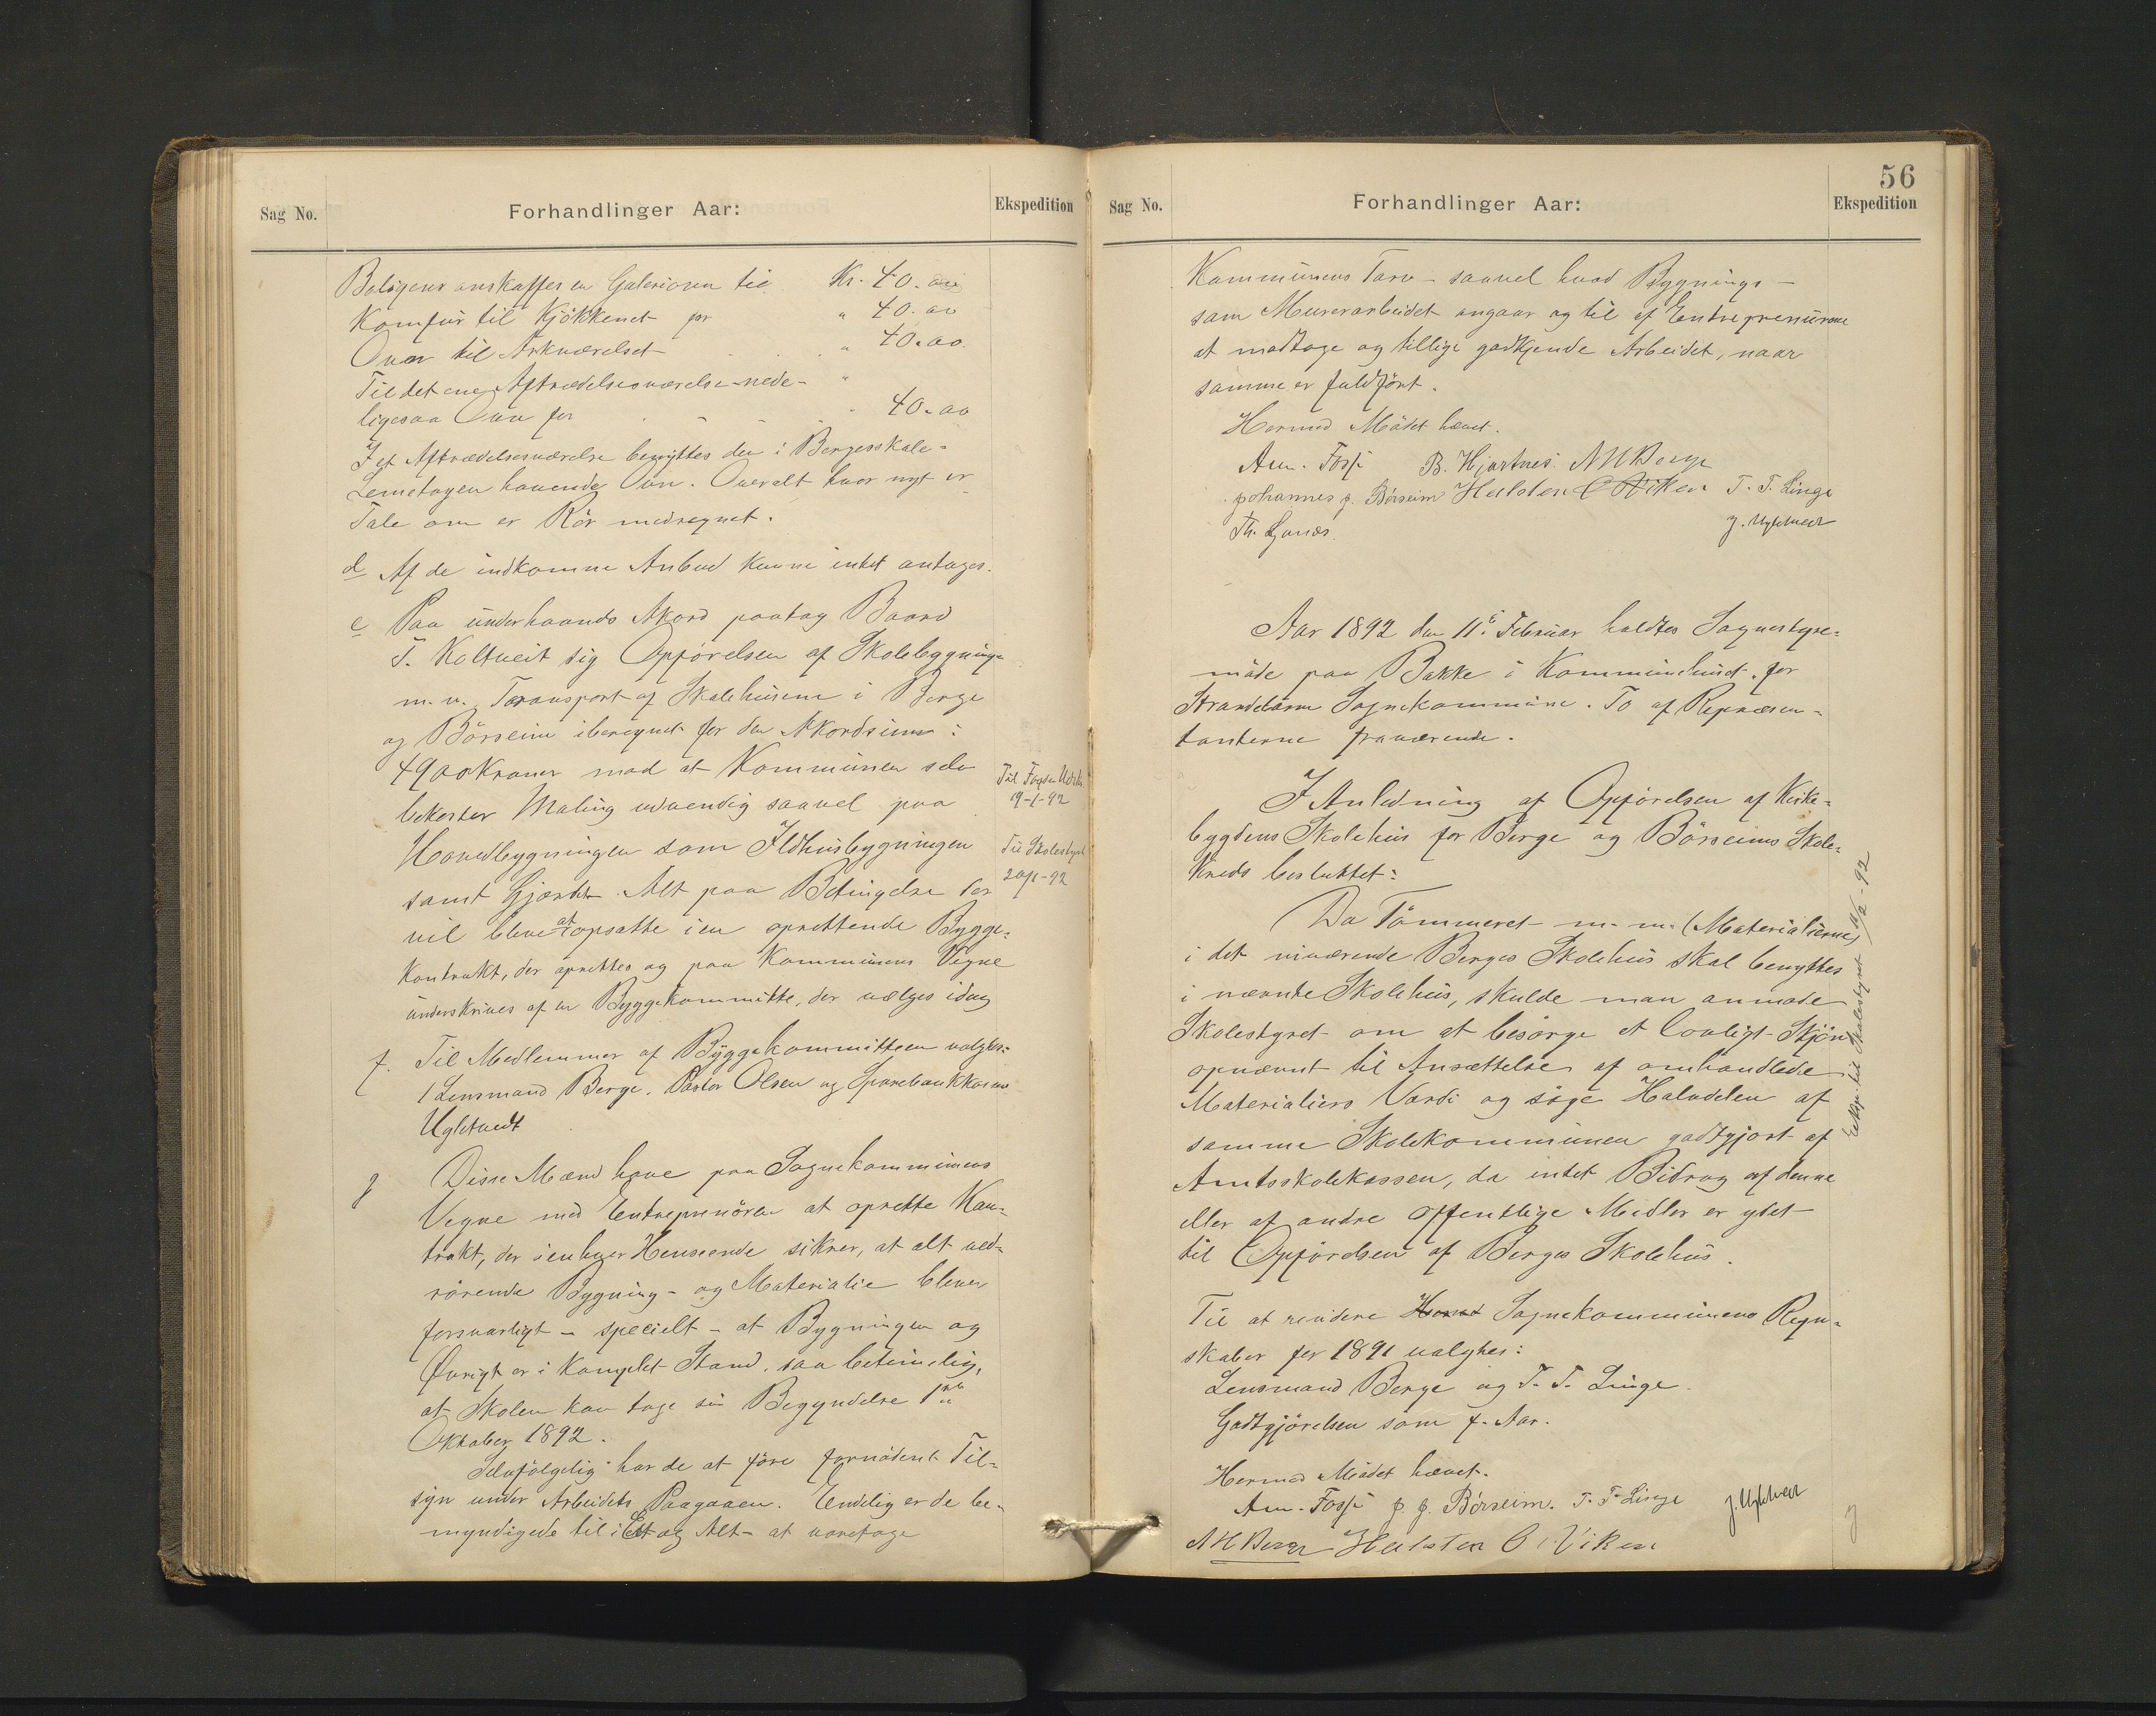 Sag No.
Forhandlinger Aar:
Ekspedition
Boligens anskaffes en Galeriovn til Kr. 40.00
Komfur til Kjökkenet for " 40.00
Ovn til Arkværelset " 40.00.
Til det ene Aftrædelsesværelse nede- "
ligesaa Ovn for 40.00
I et Aftrædelsesværelse benyttes den i Bergesskole-
Lemstogen havende Ovn. Overalt hvor nyt er
Tale om er Rör medregnet.
d Af de indkomne Anbud kunne intet antages.
e Paa underhaands Akord paatog Baard
T. Koltveit sig Opförelsen af Skolebygninge
m.v. Transport af Skolehusene i Berge
og Börseim iberegnet for den Akordsum:
4900 Kroner mod at Kommunen selv
bekoster Maling udvendig saavel paa
Hovedbygningen som Ildhusbygningen
samt Gjærdet. Alt paa Betingelse der
vil blive at opsatte i en oprettende Bygge-
kontrakt, der oprettes og paa Kommunens Vegne
underskrives af en Byggekommitte, der vælges idag
Til Fogden
19-1-92
Til Skolestyret
20/1-92
f. Til Medlemmer af Byggekommitteen valgtes:
Lensmand Berge. Pastor Olsen og Sparebankkasserer
Ugletvedt
g Disse Mænd have paa Sognekommunens
Vegne med Entreprenören at oprette Kon-
trakt, der i enhver Henseende sikrer, at alt ved-
rörende Bygning- og Materialie bliver
forsvarligt - specielt - at Bygningen og
Övrigt er i komplet Stand, saa betimelig,
at Skolen kan tage sin Begyndelse 1ste
Oktober 1892.
Selvfölgelig har de at före fornödent Til-
syn under Arbeidets Paagaaen. Endelig er de be-
myndigede til i Et og Alt - at varetage
56
Sag No.
Forhandlinger Aar:
Ekspedition
Kommunens Tarv - saavel hvad Bygnings-
som Murerarbeidet angaar og til af Entreprenurene
at modtage og tillige godkjende Arbeidet, naar
samme er fuldfört.
Hermed Mödet hævet.
Am. Fosse B. Hjartnes. A H Berge
Johannes J. Börseim Halsten O Viken T. T. Linge
Th. Lynæs. J. Ugletvedt
Aar 1892 den 11te Februar holdtes Sognestyre-
möde paa Bakke i Kommunehuset, for
Strandebarm Sognekommune. To af Repræsen-
tanterne fraværende.
I Anledning af Opförelsen af Kirke-
bygdens Skolehus for Berge og Börseims Skole-
kreds besluttet:
Da Tömmeret m. m. (Materialierne)
i det nuværende Berges Skolehus skal benyttes
i nævnte Skolehus, skulde man anmode
Skolestyret om at besörge et lovligt Skjön
opnævnt til Ansættelse af omhandlede
Materialiers Værdi og söge Halvdelen af
samme Skolekommunen godtgjort af
Amtsskolekassen, da intet Bidrag af denne
eller af andre offentlige Midler er ydet
til Opförelsen af Berges Skolehus.
Eksp. til Skolestyret 11/2-92
Til at revidere Herred Sognekommunens Regn-
skaber for 1891 valgtes:
Lensmand Berge og T. T. Linge.
Godtgjörelsen som f. Aar.
Hermed Mödet hævet.
Am. Fosse J. J. Börseim. T. T. Linge J. Ugletvedt
A H Berge Halsten O Viken